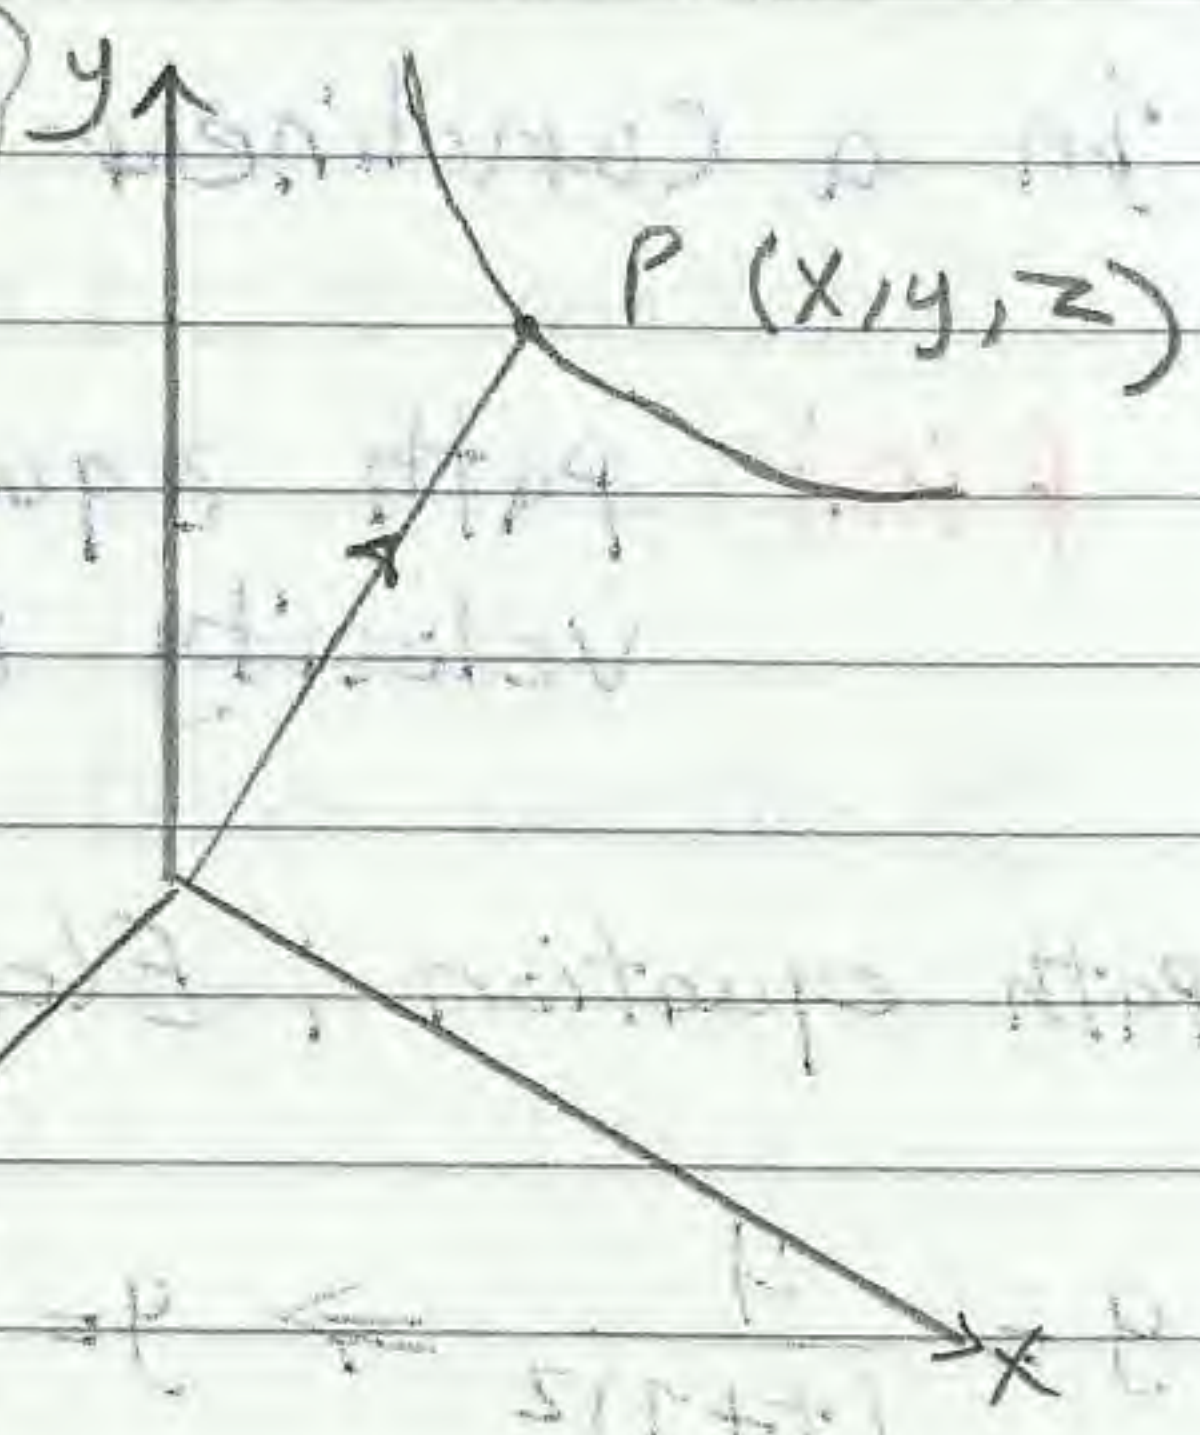 y
P (x, y, z)
x